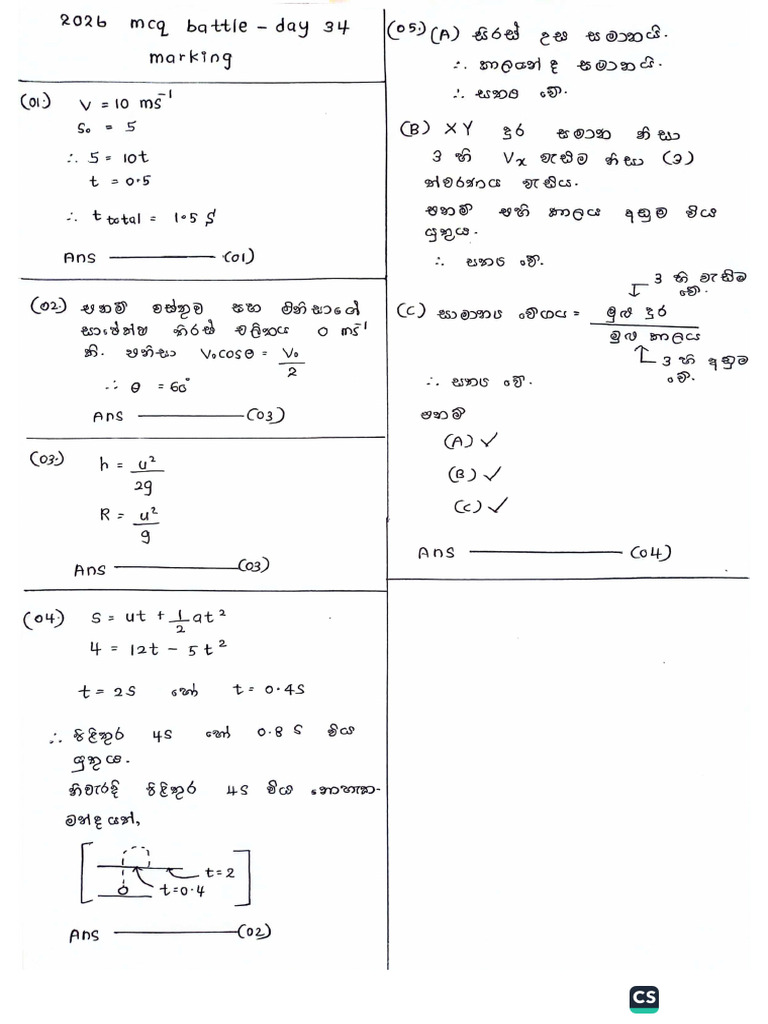 2026 mcq battle - day 34
marking
(01.) V = 10 ms⁻¹
S₀ = 5
∴ 5 = 10t
t = 0.5
∴ t total = 1.5 s
Ans ——— (01)
(02.) එනම් වස්තුව සහ මිනිසාගේ
සාපේක්ෂ තිරස් චලිතය 0 ms⁻¹
කි. එනිසා V₀cosθ = V₀/2
∴ θ = 60°
Ans ——— (03)
(03.) h = u²/2g
R = u²/g
Ans ——— (03)
(04.) S = ut + 1/2 at²
4 = 12t - 5t²
t = 2s හෝ t = 0.4s
∴ පිළිතුර 4s හෝ 0.8 s විය
යුතුය.
නිවැරදි පිළිතුර 4s විය නොහැක-
මන්ද යත්,
t = 2
t = 0.4
Ans ——— (02)
(05.) (A) සිරස් උස සමානයි.
∴ කාලයත් ද සමානයි.
∴ සත්‍ය වේ.
(B) XY දුර සමාන නිසා
3 හි Vx වැඩිම නිසා (3)
ත්වරණය වැඩිය.
එනම් එහි කාලය අඩුම විය
යුතුය.
∴ සත්‍ය වේ.
3 හි වැඩිම
වේ.
(C) සාමාන්‍ය වේගය = මුළු දුර
මුළු කාලය
3 හි අඩුම
වේ.
∴ සත්‍ය වේ.
එනම්
(A) ✓
(B) ✓
(C) ✓
Ans ——— (04)
CS